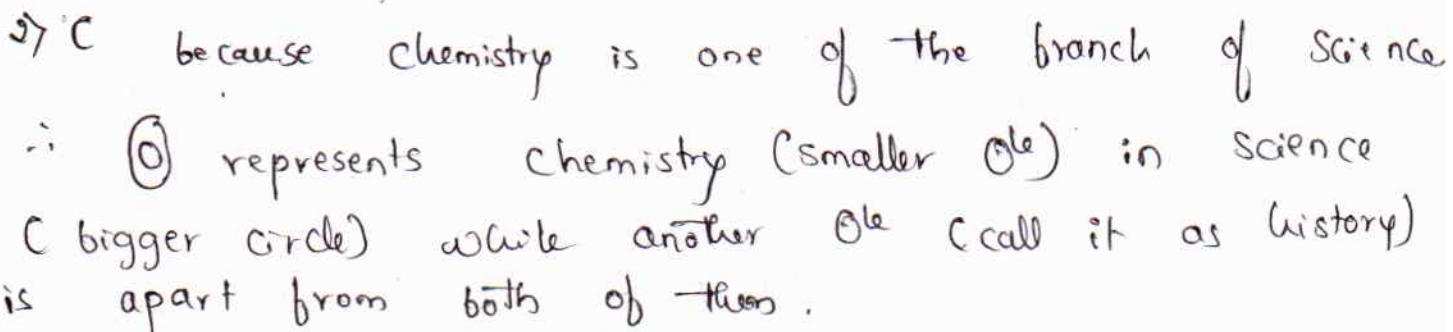 2) C because Chemistry is one of the branch of Science
∴ ⓞ represents Chemistry (smaller Ole) in Science
( bigger circle) while another Ole (call it as history)
is apart from both of them.